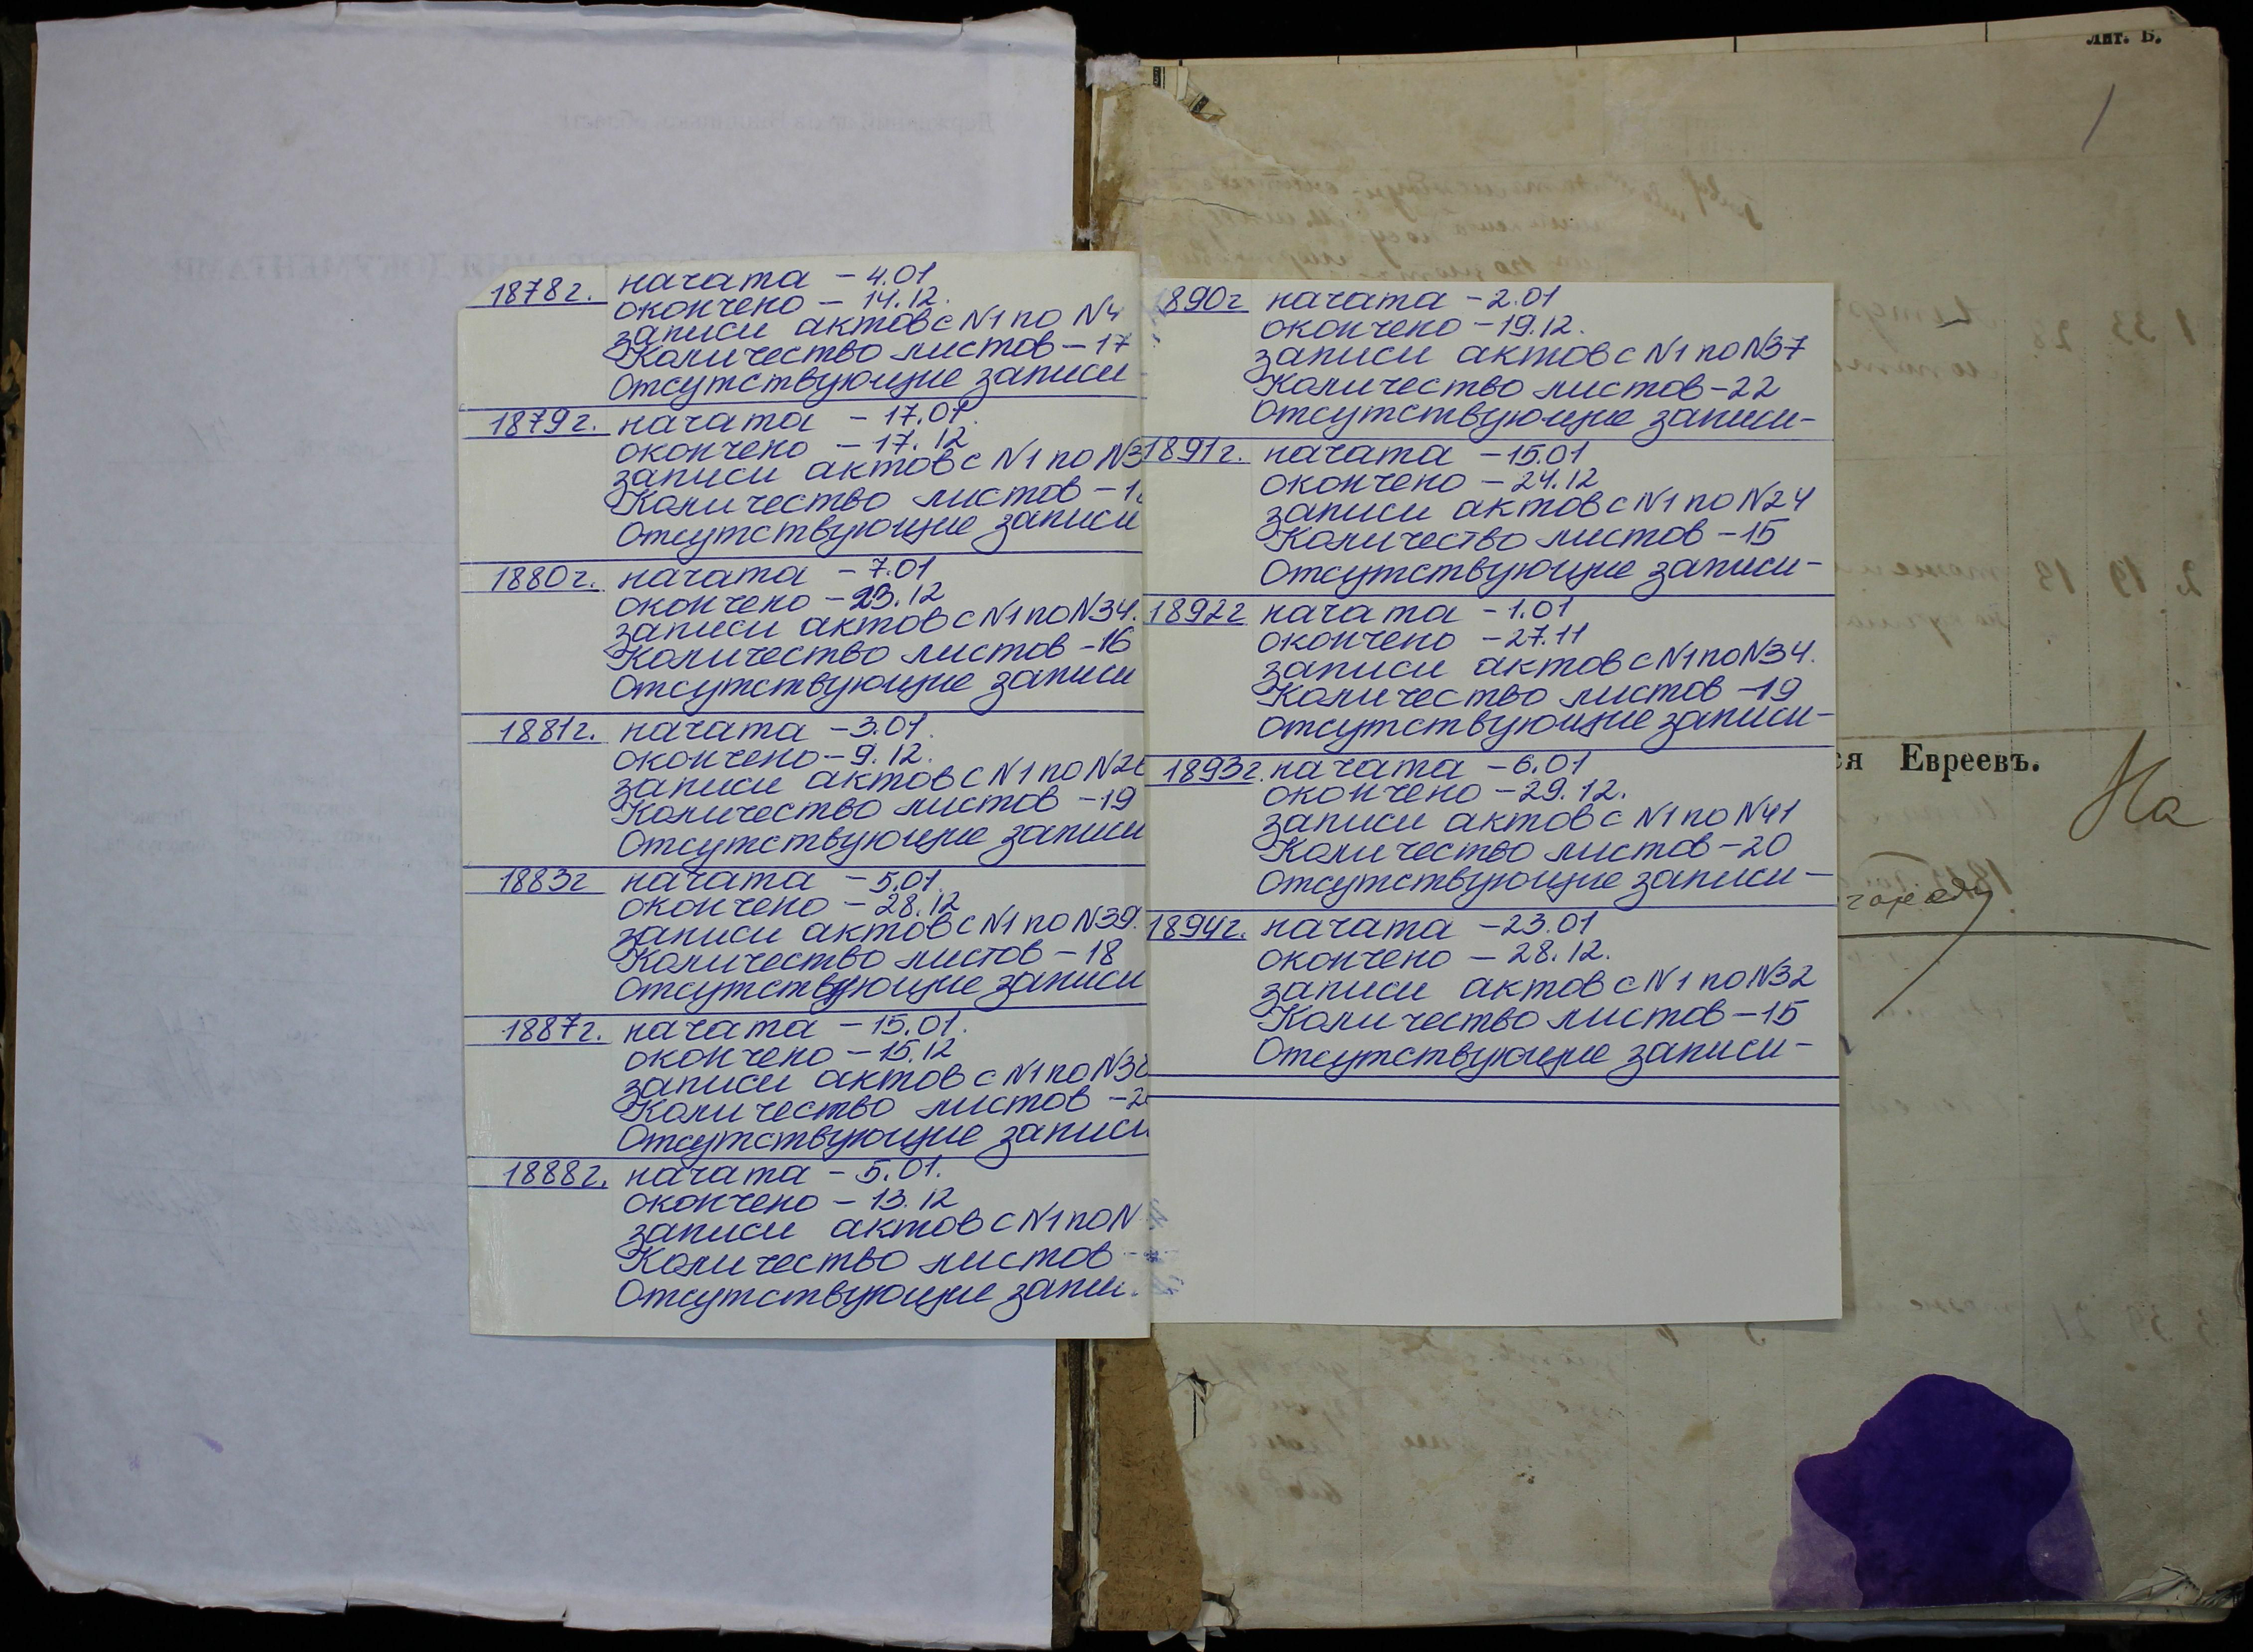 1878г. начата – 4.01
окончено – 14.12.
записи актов с N1 по N4
Количество листов – 17
Отсутствующие записи
1879г. начата – 17.01.
окончено – 17.12
записи актов с N1 по N3
Количество листов – 1
Отсутствующие записи
1880г. начата – 7.01
окончено – 23.12
записи актов с N1 по N34.
Количество листов – 16
Отсутствующие записи
1881г. начата – 3.01.
окончено – 9.12.
записи актов с N1 по N2
Количество листов – 19
Отсутствующие записи
1883г начата – 5.01.
окончено – 28.12
записи актов с N1 по N39.
Количество листов – 18
Отсутствующие записи
1887г. начата – 15.01.
окончено – 15.12
записи актов с N1 по N3
Количество листов – 2
Отсутствующие записи
1888г. начата – 5.01.
окончено – 13.12
записи актов с N1 по N
Количество листов –
Отсутствующие запи
Лит. В.
1
890г начата – 2.01
окончено – 19.12.
записи актов с N1 по N37
Количество листов – 22
Отсутствующие записи –
1891г. начата – 15.01
окончено – 24.12
записи актов с N1 по N24
Количество листов – 15
Отсутствующие записи –
1892г начата – 1.01
окончено – 27.11
записи актов с N1 по N34.
Количество листов – 19
отсутствующие записи –
1893г. начата – 6.01
окончено – 29.12.
записи актов с N1 по N41
Количество листов – 20
Отсутствующие записи –
1894г. начата – 23.01
окончено – 28.12.
записи актов с N1 по N32
Количество листов – 15
Отсутствующие записи –
ся Евреевъ.
На